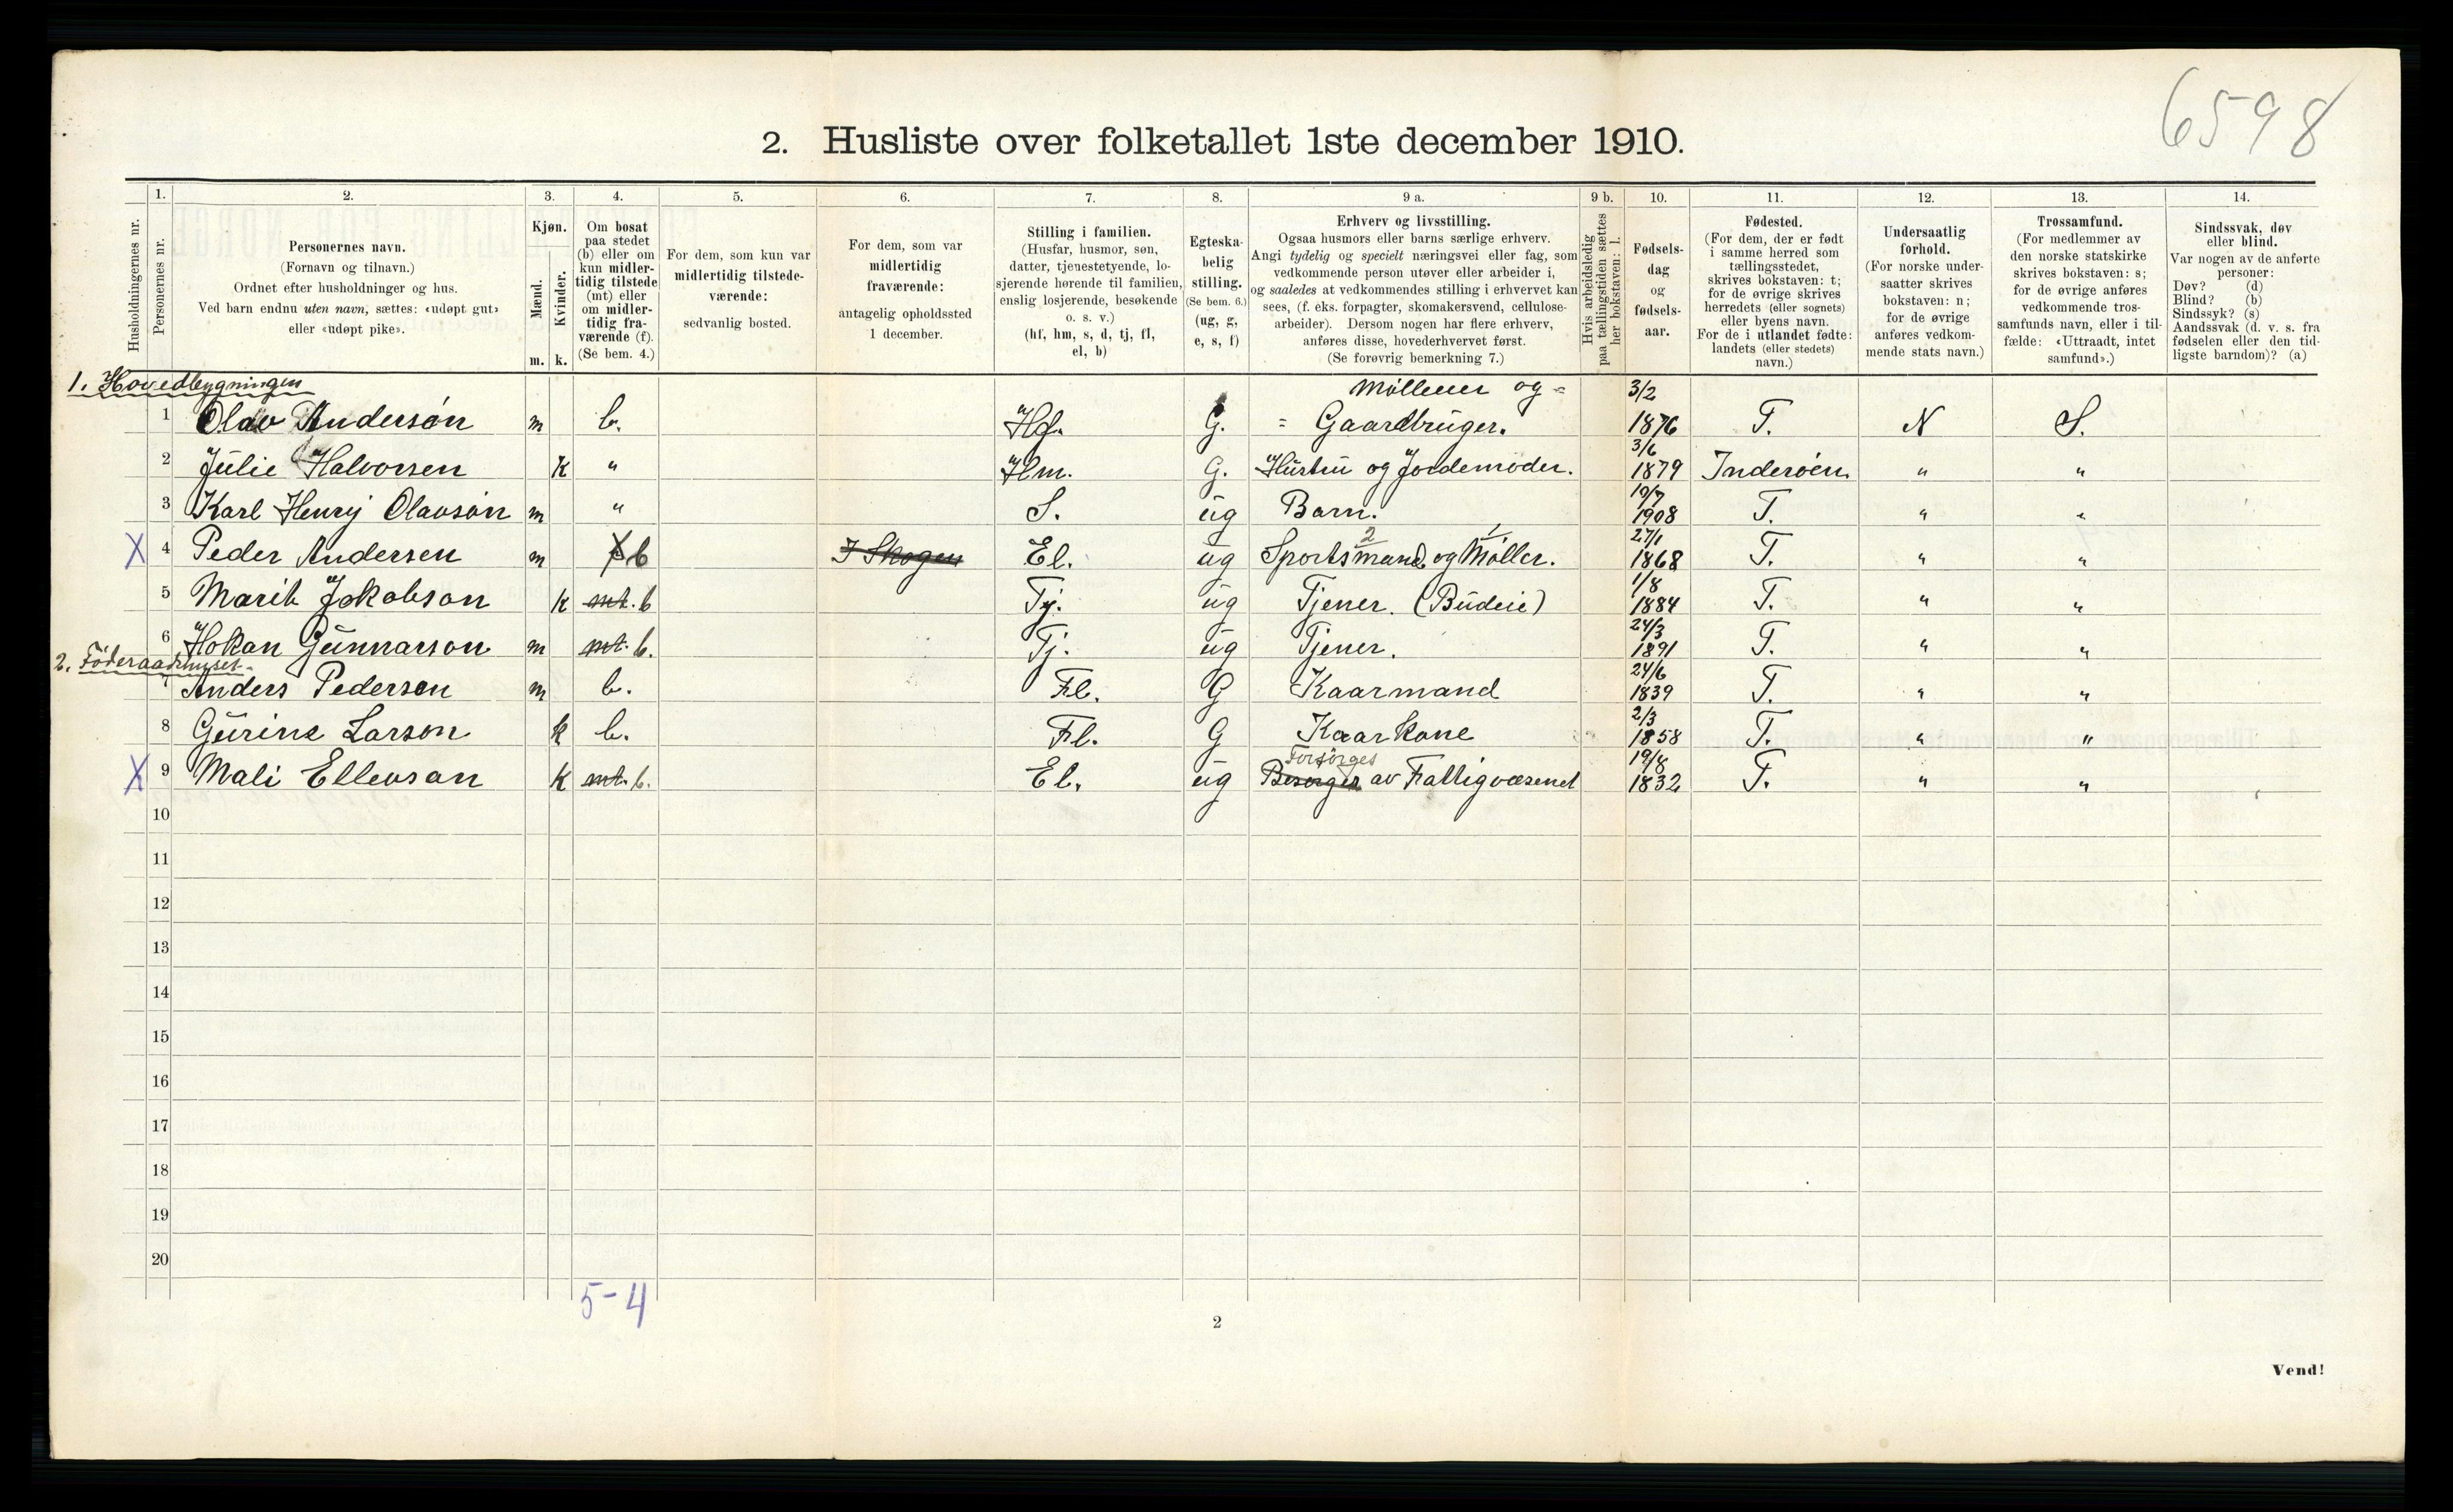 6598
2. Husliste over folketallet 1ste december 1910.
Husholdningernes nr.
1.
Personernes nr.
2.
Personernes navn.
(Fornavn og tilnavn.)
Ordnet efter husholdninger og hus.
Ved barn endnu uten navn, sættes: «udøpt gut»
eller «udøpt pike».
3.
Kjøn.
Mænd.
Kvinder.
m. k.
4.
Om bosat
paa stedet
(b) eller om
kun midler-
tidig tilstede
(mt) eller
om midler-
tidig fra-
værende (f).
(Se bem. 4.)
5.
For dem, som kun var
midlertidig tilstede-
værende:
sedvanlig bosted.
6.
For dem, som var
midlertidig
fraværende:
antagelig opholdssted
1 december.
7.
Stilling i familien.
(Husfar, husmor, søn,
datter, tjenestetyende, lo-
sjerende hørende til familien,
enslig losjerende, besøkende
o. s. v.)
(hf, hm, s, d, tj, fl,
el, b)
8.
Egteska-
belig
stilling.
(Se bem. 6.)
(ug, g,
e, s, f)
9 a.
Erhverv og livsstilling.
Ogsaa husmors eller barns særlige erhverv.
Angi tydelig og specielt næringsvei eller fag, som
vedkommende person utøver eller arbeider i,
og saaledes at vedkommendes stilling i erhvervet kan
sees, (f. eks. forpagter, skomakersvend, cellulose-
arbeider). Dersom nogen har flere erhverv,
anføres disse, hovederhvervet først.
(Se forøvrig bemerkning 7.)
9 b.
Hvis arbeidsledig
paa tællingstiden sættes
her bokstaven: l.
10.
Fødsels-
dag
og
fødsels-
aar.
11.
Fødested.
(For dem, der er født
i samme herred som
tællingsstedet,
skrives bokstaven: t;
for de øvrige skrives
herredets (eller sognets)
eller byens navn.
For de i utlandet fødte:
landets (eller stedets)
navn.)
12.
Undersaatlig
forhold.
(For norske under-
saatter skrives
bokstaven: n;
for de øvrige
anføres vedkom-
mende stats navn.)
13.
Trossamfund.
(For medlemmer av
den norske statskirke
skrives bokstaven: s;
for de øvrige anføres
vedkommende tros-
samfunds navn, eller i til-
fælde: «Uttraadt, intet
samfund».)
14.
Sindssvak, døv
eller blind.
Var nogen av de anførte
personer:
Døv? (d)
Blind? (b)
Sindssyk? (s)
Aandssvak (d. v. s. fra
fødselen eller den tid-
ligste barndom)? (a)
1. Hovedbygningen
Møllener og = 3/2
1 Olav Andersòn m b. Hf. G. = Gaardbruger. 1876 T. N S.
3/6
2 Julie Halvorsen K " Hm. G. Hustru og Jordemoder. 1879 Inderöen. " "
19/7
3 Karl Henry Olavsòn m " S. ug Barn. 1908 T. " "
2 1 27/1
X 4 Peder Andersen m f b I Skogen El. ug Sportsmand og Møller. 1868 T. " "
1/8
5 Marit Jakobson K mt. b Tj. ug Tjener. (Budeie) 1884 T. " "
24/3
6 Hokan Gunnarson m mt. b. Tj. ug Tjener. 1891 T. " "
2. Föderaadshuset 24/6
7 Anders Pedersen m b. Fl. G Kaarmand 1839 T. " "
2/3
8 Gurine Larson k b. Fl. G Kaarkone 1858 T. " "
Forsørges 19/8
X 9 Mali Ellevsan K mt. b. El. ug Besørges av Fattigvæsenet 1832 T. " "
10
11
12
13
14
15
16
17
18
19
20
5-4
2
Vend!